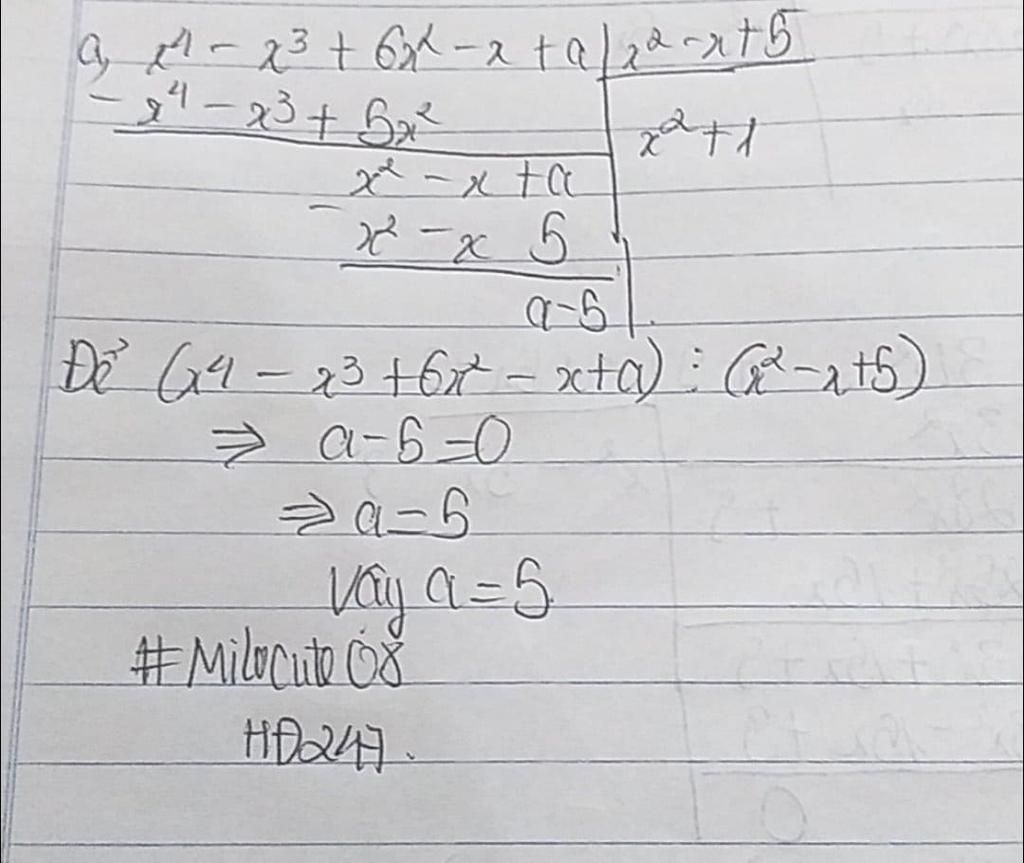 a, x⁴ - x³ + 6x² - x + a | x² - x + 5
- x⁴ - x³ + 5x² | x² + 1
x² - x + a
- x² - x 5
a - 5
Để (x⁴ - x³ + 6x² - x + a) ⋮ (x² - x + 5)
⇒ a - 5 = 0
⇒ a = 5
Vậy a = 5.
#Milocute08
HĐ247.